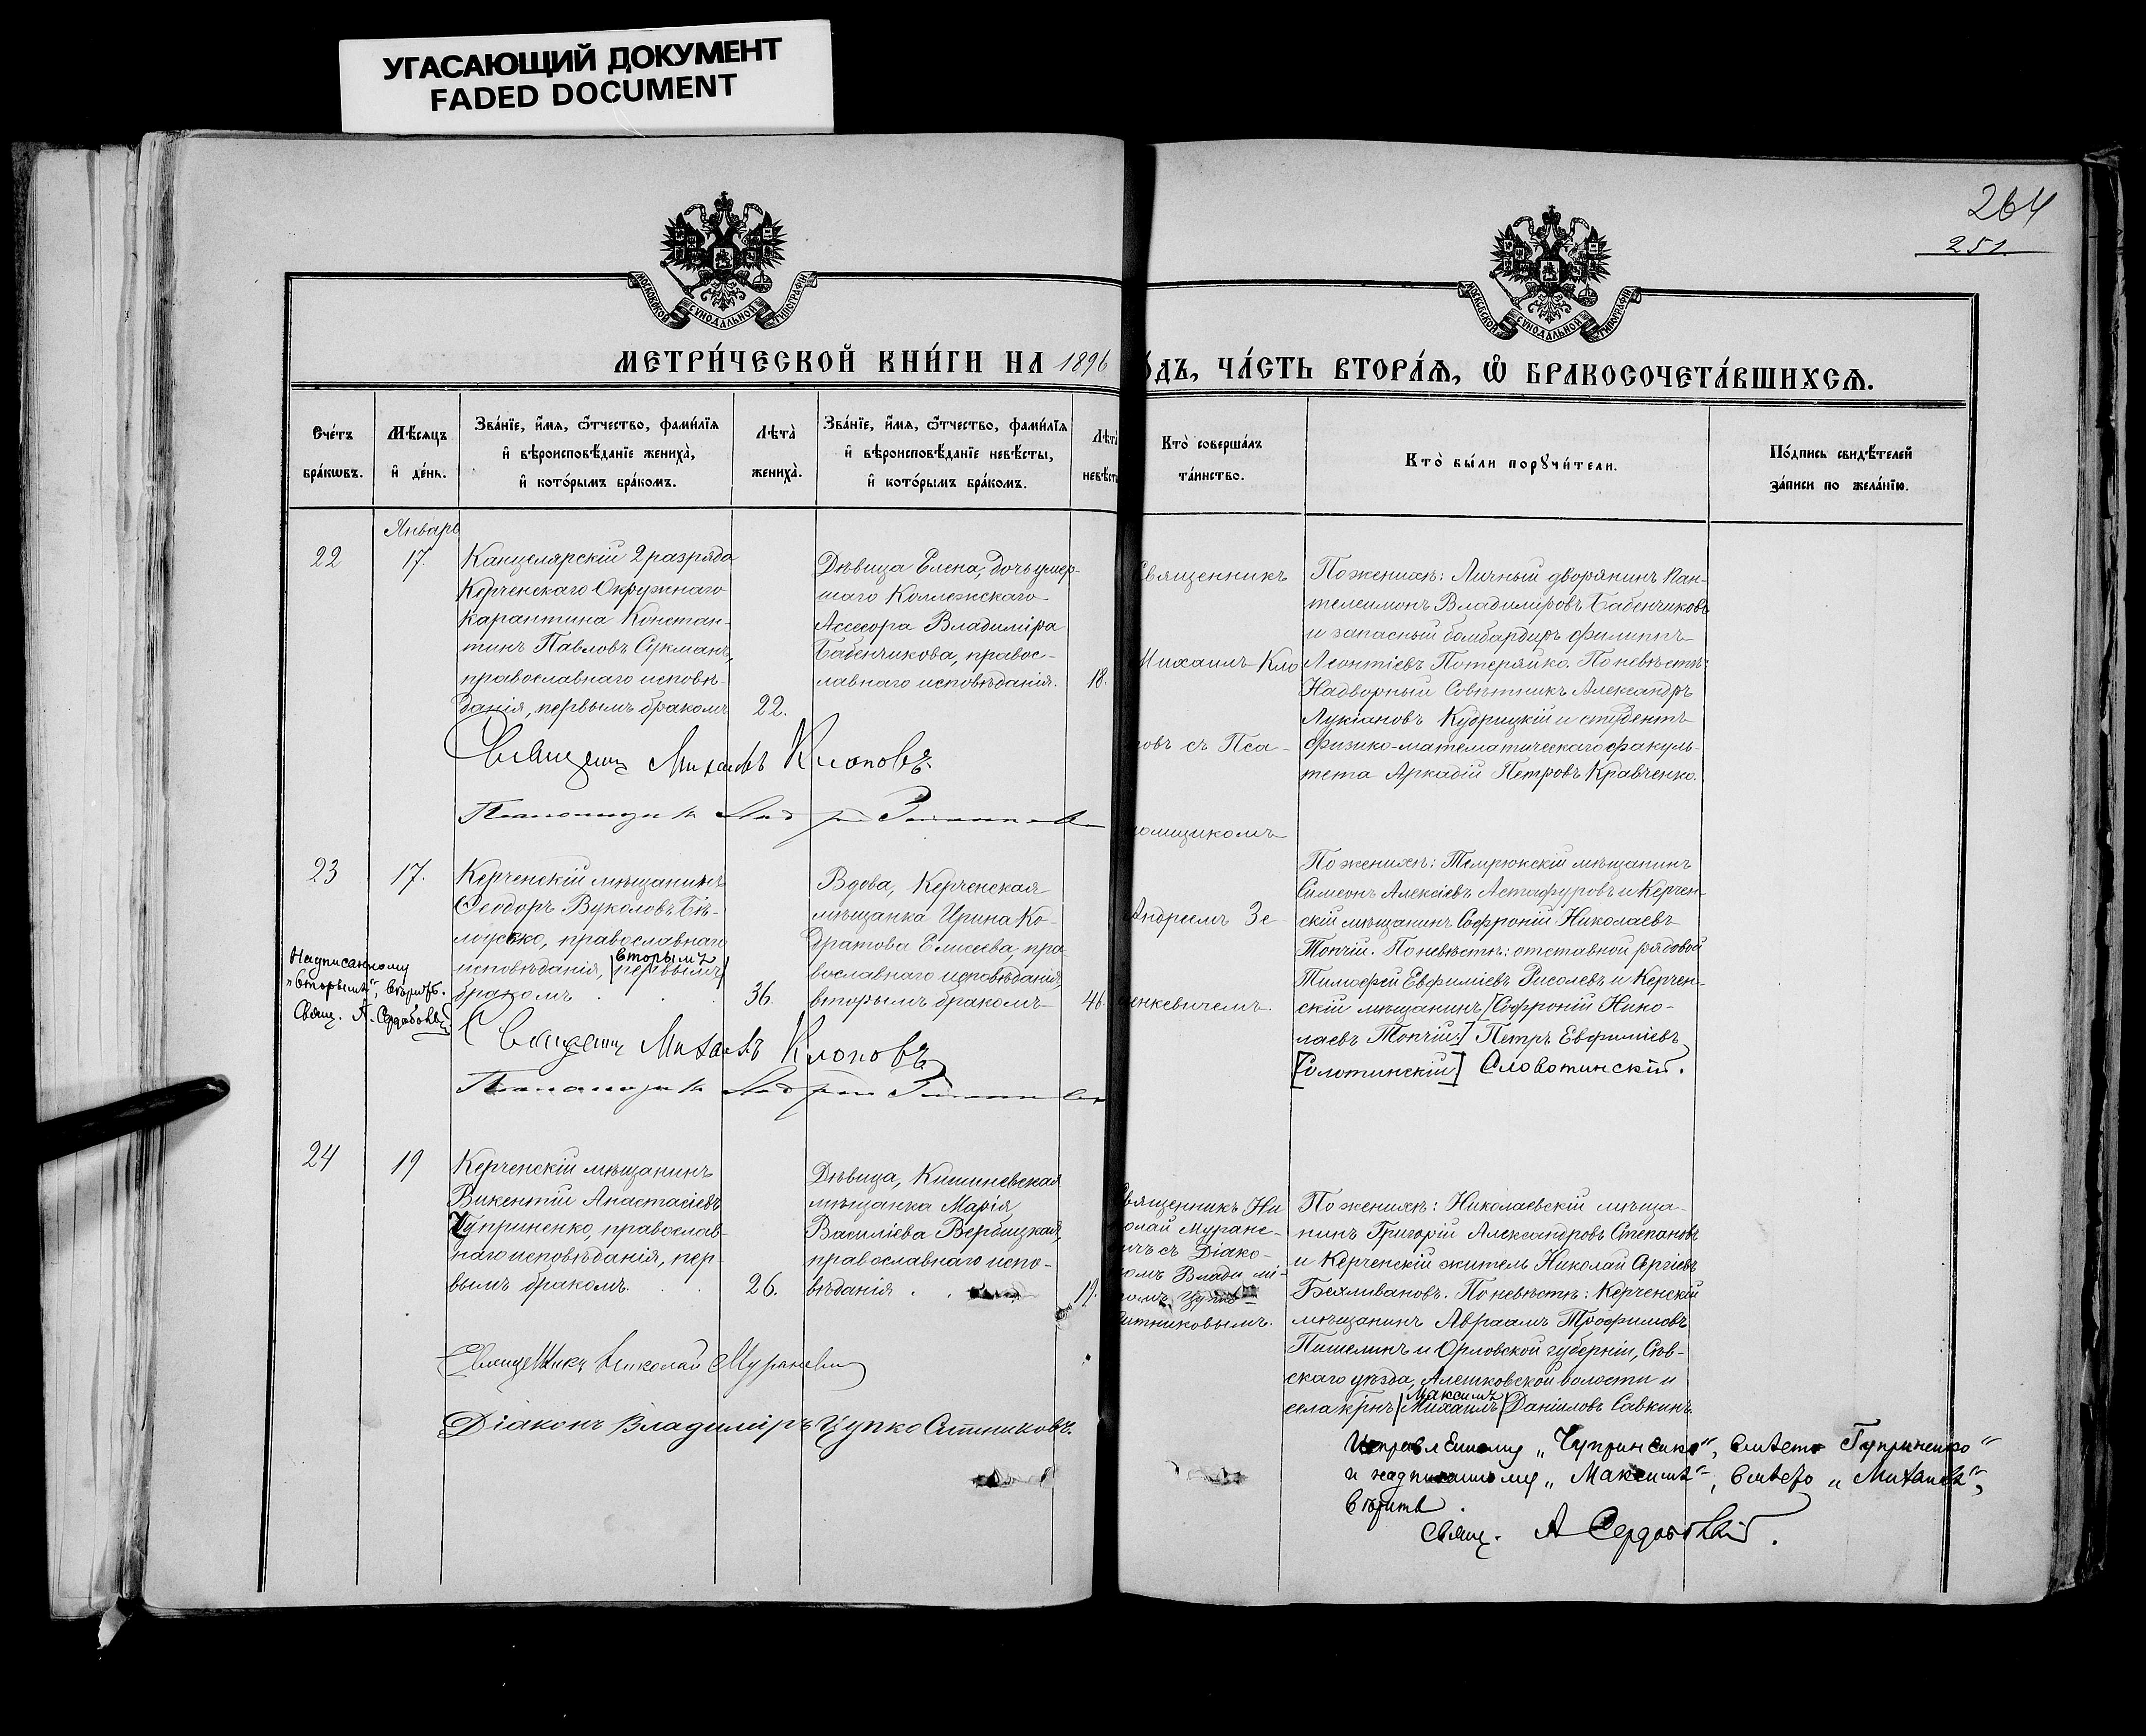 УГАСАЮЩИЙ ДОКУМЕНТ
FADED DOCUMENT
264
251.
МОСКОВСКОЙ СѴНОДАЛЬНОЙ ТИПОГРАФІИ
МОСКОВСКОЙ СѴНОДАЛЬНОЙ ТИПОГРАФІИ
МЕТРИ́ЧЕСКОЙ КНИ́ГИ НА 1896
О́ДЪ, ЧА́СТЬ ВТОРА́Ѧ, Ѡ҆ БРАКОСОЧЕТА́ВШИХСѦ.
Сче́тъ
бра́кѡвъ.
Мѣ́сѧцъ
и҆ де́нь.
Зва́нїе, и҆́мѧ, ѻ҆́тчество, фами́лїѧ
и҆ вѣроисповѣ́данїе жениха̀,
и҆ кото́рымъ бра́комъ.
Лѣта̀
жениха̀.
Зва́нїе, и҆́мѧ, ѻ҆́тчество, фами́лїѧ
и҆ вѣроисповѣ́данїе невѣ́сты,
и҆ кото́рымъ бра́комъ.
Лѣта̀
невѣ́ст
Кто̀ соверша́лъ
та́инство.
Кто̀ бы́ли порꙋчи́тели.
По́дпись свидѣ́телей
за́писи по жела́нїю.
Январь
22
17.
Канцелярскій 2 разряда
Керченскаго Окружнаго
Карантина Констан-
тинъ Павловъ Сукманъ,
православнаго исповѣ-
данія, первымъ бракомъ
22.
Дѣвица Елена, дочь умер-
шаго Коллежскаго
Ассесора Владиміра
Бабенчикова, правос-
лавнаго исповѣданія.
18.
Священникъ
Михаилъ Кло
повъ съ Пса-
ломщикомъ
Андреемъ Зе-
нкевичемъ.
По женихѣ: Личный дворянинъ Пан-
телеимонъ Владиміровъ Бабенчиковъ
и запасный бомбардиръ Филиппъ
Леонтіевъ Потеряйко. По невѣстѣ:
Надворный Совѣтникъ Александръ
Лукіановъ Кудрицкій и студентъ
физико-математическаго факуль-
тета Аркадій Петровъ Кравченко.
Священникъ Михаилъ Клоповъ
Псаломщикъ Андрей
23
17.
Керченскій мѣщанинъ
Ѳеодоръ Вуколовъ Бѣ-
лоусько, православнаго
вторымъ
исповѣданія, [первымъ]
бракомъ
36.
Надписанному
„вторымъ", вѣрить.
Свящ. А. Сердобольскій
Вдова, Керченская
мѣщанка Ирина Ко-
дратова Елисеева, пра-
вославнаго исповѣданія,
вторымъ бракомъ
46.
По женихѣ: Темрюкскій мѣщанинъ
Симеонъ Алексіевъ Астафуровъ и Керчен-
скій мѣщанинъ Софроній Николаевъ
Топчій. По невѣстѣ: отставной рядовой
Тимоѳей Евфиміевъ Рисолевъ и Керчен-
скій мѣщанинъ [Софроній Нико-
лаевъ Топчій] Петръ Евфиміевъ
[Солотинскій] Словотинскій.
Священникъ Михаилъ Клоповъ
Псаломщикъ Андрей
24
19
Керченскій мѣщанинъ
Викентій Анастасіевъ
Чуприненко, православ-
наго исповѣданія, пер-
вымъ бракомъ.
26.
Дѣвица, Кишиневская
мѣщанка Марія
Василіева Вербицкая,
православнаго испо-
вѣданія
19.
Священникъ Ни
колай Муране-
ичъ съ Діако-
номъ Владимі-
ромъ Цупко
Ситниковымъ.
По женихѣ: Николаевскій мѣща-
нинъ Григорій Александровъ Степановъ
и Керченскій житель Николай Сергіевъ
Бехливановъ. По невѣстѣ: Керченскій
мѣщанинъ Авраамъ Трофимовъ
Пишелинъ и Орловской губерніи, Сѣв-
скаго уѣзда, Алешковской волости и
Максимъ
села [Михаилъ] Даніиловъ Савкинъ.
Священникъ Николай Мураневичъ
Діаконъ Владиміръ Цупко Ситниковъ.
Исправленному „Чуприненко", вмѣсто „Гуприненко"
и надписанному „Максимъ", вмѣсто „Михаилъ",
вѣрить.
Свящ. А Сердобольскій.